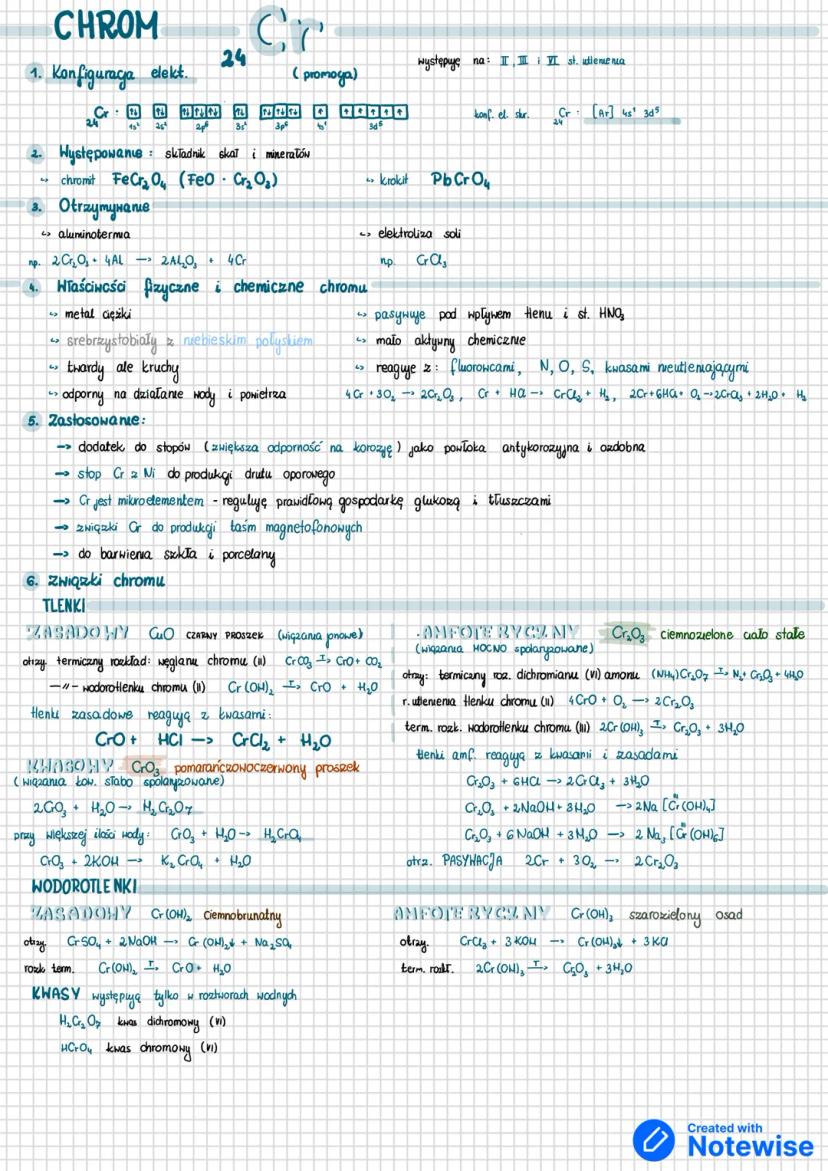 CHROM Cr
24
występuję na: II, III i VI st. utlenienia
1. Konfiguracja elekt. (promocja)
₂₄Cr: 1s² 2s² 2p⁶ 3s² 3p⁶ 4s¹ 3d⁵
konf. el. skr. ₂₄Cr: [Ar] 4s¹ 3d⁵
2. Występowanie: składnik skał i minerałów
↳ chromit FeCr₂O₄ (FeO · Cr₂O₃) ↳ krokit PbCrO₄
3. Otrzymywanie
↳ aluminotermia ↳ elektroliza soli
np. 2Cr₂O₃ + 4Al → 2Al₂O₃ + 4Cr np. CrCl₃
4. Właściwości fizyczne i chemiczne chromu
↳ metal ciężki
↳ srebrzystobiały z niebieskim połyskiem
↳ twardy ale kruchy
↳ odporny na działanie wody i powietrza
↳ pasywuje pod wpływem tlenu i st. HNO₃
↳ mało aktywny chemicznie
↳ reaguje z: fluorowcami, N, O, S, kwasami nieutleniającymi
4Cr + 3O₂ → 2Cr₂O₃, Cr + HCl → CrCl₂ + H₂, 2Cr + 6HCl + O₂ → 2CrCl₃ + 2H₂O + H₂
5. Zastosowanie:
→ dodatek do stopów (zwiększa odporność na korozję) jako powłoka antykorozyjna i ozdobna
→ stop Cr z Ni do produkcji drutu oporowego
→ Cr jest mikroelementem - reguluję prawidłową gospodarkę glukozą i tłuszczami
→ związki Cr do produkcji taśm magnetofonowych
→ do barwienia szkła i porcelany
6. Związki chromu
TLENKI
ZASADOWY CuO CZARNY PROSZEK (wiązania jonowe)
otrzy. termiczny rozkład: węglanu chromu (II) CrCO₃ T→ CrO + CO₂
—//— wodorotlenku chromu (II) Cr(OH)₂ T→ CrO + H₂O
tlenki zasadowe reagują z kwasami:
CrO + HCl → CrCl₂ + H₂O
KWASOWY CrO₃ pomarańczowoczerwony proszek
(wiązania kow. słabo spolaryzowane)
2CrO₃ + H₂O → H₂Cr₂O₇
przy większej ilości wody: CrO₃ + H₂O → H₂CrO₄
CrO₃ + 2KOH → K₂CrO₄ + H₂O
· AMFOTERYCZNY Cr₂O₃ ciemnozielone ciało stałe
(wiązania MOCNO spolaryzowane)
otrzy: termiczny roz. dichromianu (VI) amonu (NH₄)Cr₂O₇ T→ N₂ + Cr₂O₃ + 4H₂O
r. utlenienia tlenku chromu (II) 4CrO + O₂ → 2Cr₂O₃
term. rozk. wodorotlenku chromu (III) 2Cr(OH)₃ T→ Cr₂O₃ + 3H₂O
tlenki amf. reagują z kwasami i zasadami
Cr₂O₃ + 6HCl → 2CrCl₃ + 3H₂O
Cr₂O₃ + 2NaOH + 3H₂O → 2Na[Cr(OH)₄]
Cr₂O₃ + 6NaOH + 3H₂O → 2Na₃[Cr(OH)₆]
otrz. PASYWACJA 2Cr + 3O₂ → 2Cr₂O₃
WODOROTLENKI
ZASADOWY Cr(OH)₂ ciemnobrunatny
otrzy. CrSO₄ + 2NaOH → Cr(OH)₂↓ + Na₂SO₄
rozk. term. Cr(OH)₂ T→ CrO + H₂O
AMFOTERYCZNY Cr(OH)₃ szarozielony osad
otrzy. CrCl₃ + 3KOH → Cr(OH)₃↓ + 3KCl
term. rozkł. 2Cr(OH)₃ T→ Cr₂O₃ + 3H₂O
KWASY występują tylko w roztworach wodnych
H₂Cr₂O₇ kwas dichromowy (VI)
HCrO₄ kwas chromowy (VI)
Created with
Notewise